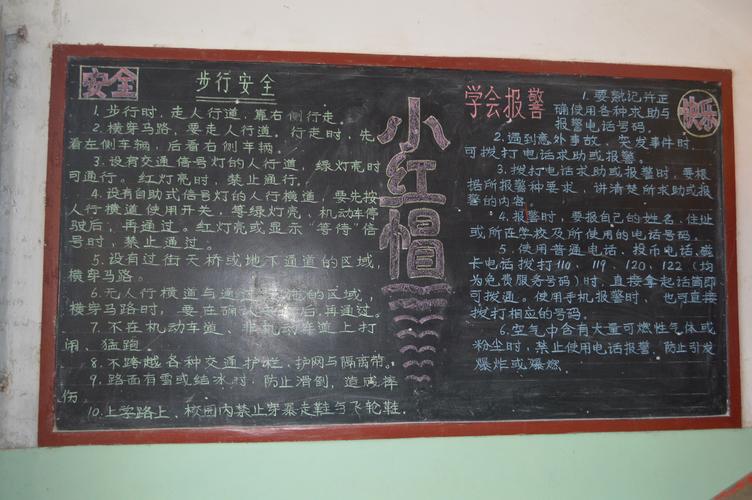 安全
步行安全
1. 步行时,走人行道,靠右侧行走。
2. 横穿马路,要走人行道。行走时,先
看左侧车辆,后看右侧车辆。
3. 设有交通信号灯的人行道,绿灯亮时
可通行。红灯亮时,禁止通行。
4. 设有自助式信号灯的人行横道,要先按
人行横道使用开关,等绿灯亮,机动车停
驶后,再通过。红灯亮或显示“等待”信
号时,禁止通过。
5. 设有过街天桥或地下通道的区域,
横穿马路。
6. 无人行横道与通过的区域,
横穿马路时,要在确后,再通过。
7. 不在机动车道、非机动车道上打
闹、猛跑。
8. 不跨越各种交通护栏、护网与隔离带。
9. 路面有雪或结冰时,防止滑倒,造成摔
伤。
10. 上学路上、校园内禁止穿暴走鞋与飞轮鞋.
小红帽
学会报警
快乐
1. 要熟记并正
确使用各种求助与
报警电话号码。
2. 遇到意外事故,突发事件时,
可拨打电话求助或报警。
3. 拨打电话求助或报警时,要根
据所报警种要求,讲清楚所求助或报
警的内容。
4. 报警时,要报自己的姓名、住址
或所在学校及所使用的电话号码。
5. 使用普通电话、投币电话、磁
卡电话拨打110、119、120、122(均
为免费服务号码)时,直接拿起话筒即
可拨通。使用手机报警时,也可直接
拨打相应的号码。
6. 空气中含有大量可燃性气体或
粉尘时,禁止使用电话报警,防止引发
爆炸或爆燃。